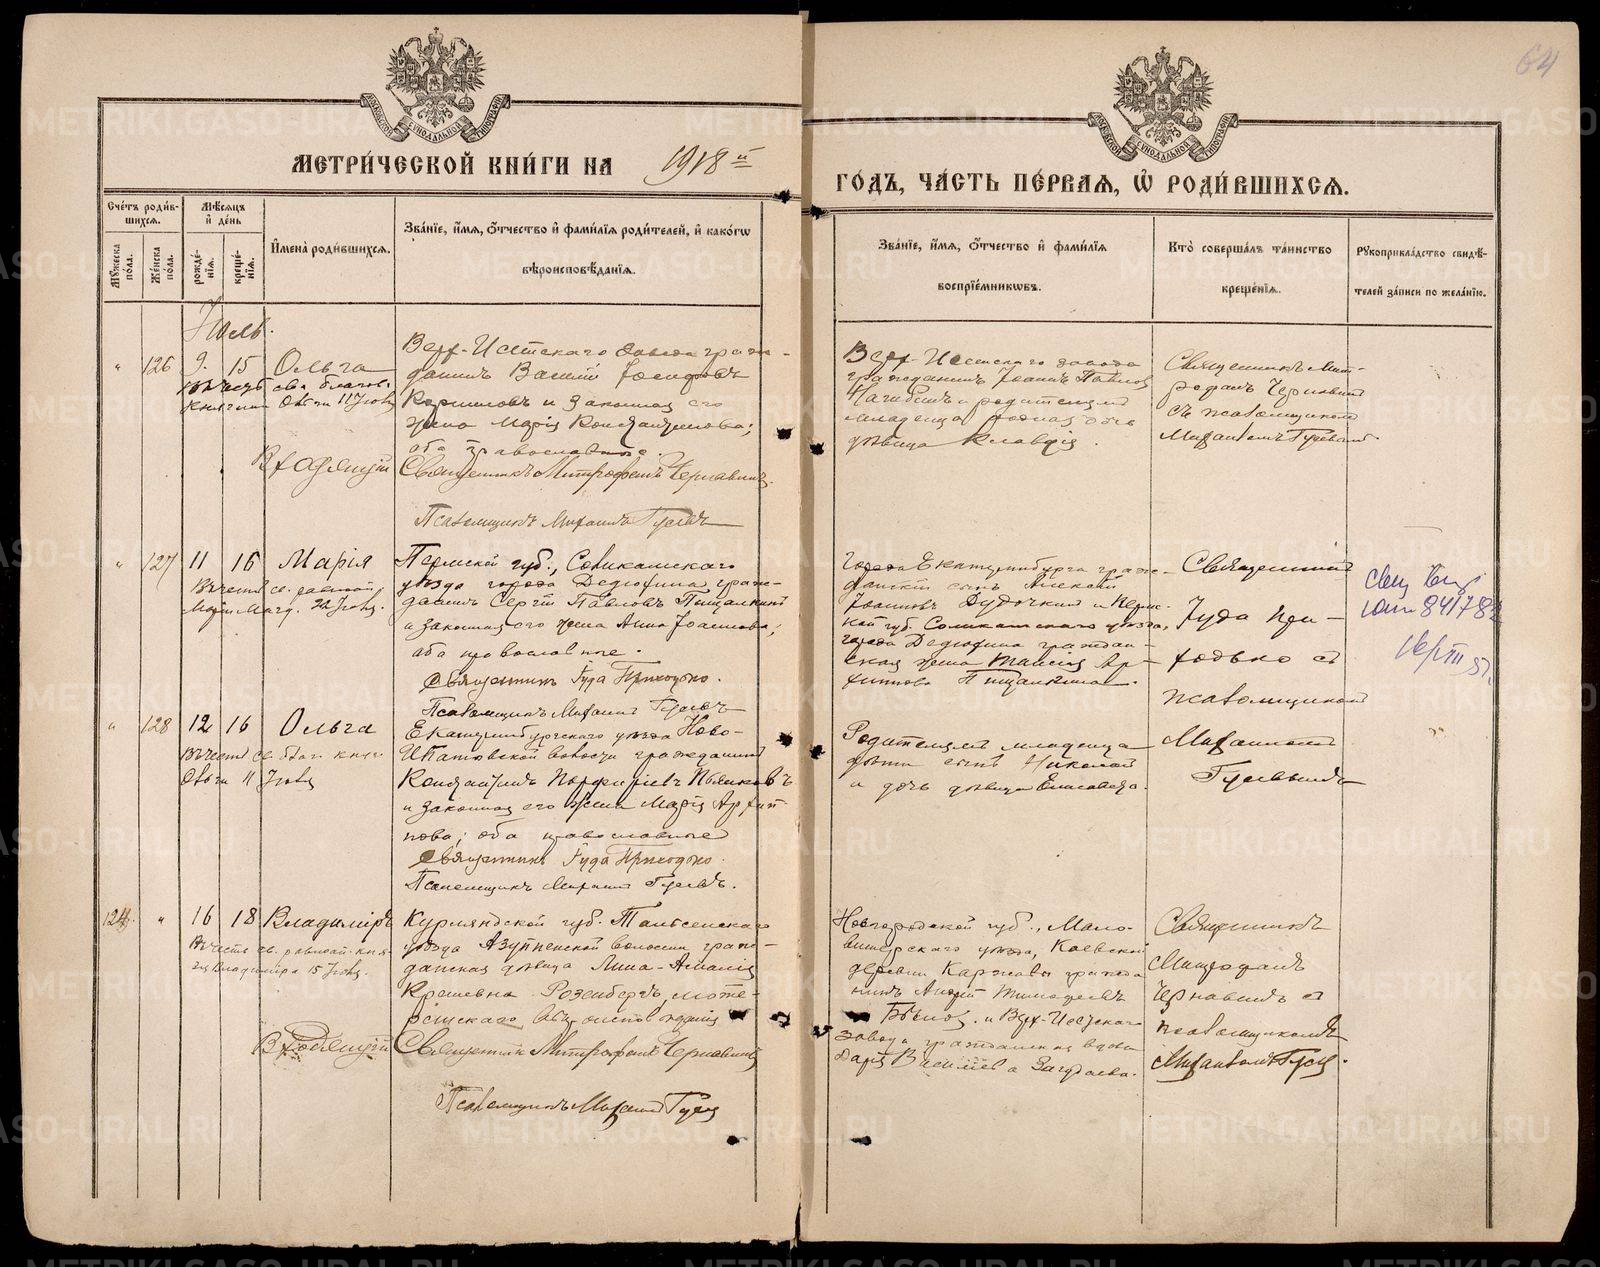 64
МОСКОВСКОЙ СѴНОДАЛЬНОЙ ТИПОГРАФІИ
МОСКОВСКОЙ СѴНОДАЛЬНОЙ ТИПОГРАФІИ
МЕТРИ́ЧЕСКОЙ КНИ́ГИ НА 1918 й
ГО́ДЪ, ЧА́СТЬ ПЕ́РВАѦ, Ѽ РОДИ́ВШИХСѦ.
Сче́тъ роди́в-
шихсѧ.
Мꙋ́жеска по́ла.
Же́нска по́ла.
Мѣ́сѧцъ
и҆ де́нь
рожде́-
нїѧ.
креще́-
нїѧ.
И҆мена̀ роди́вшихсѧ.
Зва́нїе, и҆́мѧ, ѻ҆́тчество и҆ фами́лїѧ роди́телей, и҆ како́гѡ
вѣроисповѣ́данїѧ.
Зва́нїе, и҆́мѧ, ѻ҆́тчество и҆ фами́лїѧ
воспрїе́мникѡвъ.
Кто̀ соверша́лъ та́инство
креще́нїѧ.
Рꙋкоприкла́дство свидѣ́-
телей за́писи по жела́нїю.
Іюль.
" 126 9. 15 Ольга
въ честь св. благов.
княгини Ольги 11 Іюля
Верх-Исетскаго завода граж-
данинъ Василій Іосифовъ
Кормиловъ и законная его
жена Марія Константинова;
оба православные.
Священникъ Митрофанъ Чернавинъ.
Псаломщикъ Михаилъ Гусевъ
Верх-Исетскаго завода
гражданинъ Іоаннъ Павлов
Нагибинъ и родителей
младенца родная дочь
дѣвица Клавдія.
Священникъ Мит-
рофанъ Чернавинъ
съ псаломщикомъ
Михаиломъ Гусевымъ.
" 127 11 16 Марія
Въ честь св. равноап.
Маріи Магд. 22 Іюля.
Пермской губ., Соликамскаго
уѣзда города Дедюхина граж-
данинъ Сергій Павловъ Пищалкинъ
и законная его жена Анна Іоаннова;
оба православные.
Священникъ Іуда Приходько.
Псаломщикъ Михаилъ Гусевъ
Города Екатеринбурга граж-
данскій сынъ Алексѣй
Іоанновъ Дудочкин и Перм-
ской губ. Соликамскаго уѣзда,
города Дедюхина граждан-
ская жена Таисія Ар-
хиппова Пищалкина.
Священникъ
Іуда При-
ходько съ
псаломщикомъ
Михаиломъ
Гусевымъ
" 128 12 16 Ольга
Въ честь св. благ. княг.
Ольги 11 Іюля
Екатеринбургскаго уѣзда Ново-
Ипатовской волости гражданинъ
Константинъ Порфирьевъ Пьянковъ
и законная его жена Марія Архип-
пова; оба православные
Священникъ Іуда Приходько.
Псаломщикъ Михаилъ Гусевъ.
Родителей младенца
дѣти сынъ Николай
и дочь дѣвица Елисавета.
124. " 16 18 Владиміръ
Въ честь св. равноап. кня-
зя Владиміра 15 Іюля.
Курляндской губ. Тальсенскаго
уѣзда Азуппенской волости граж-
данская дѣвица Лина-Амалія
Розенбергъ, люте-
ранскаго вѣроисповѣданія
Священникъ Митрофанъ Чернавинъ
Псаломщикъ Михаилъ Гусевъ
Новгородской губ., Мало-
вишерскаго уѣзда,
деревни гражда-
нинъ Андрей Тимофеевъ
и Верх-Исетскаго
завода гражданская вдова
Дарія Василіева
Священникъ
Митрофанъ
Чернавинъ съ
псаломщикомъ
Михаиломъ Гусев.
METRIKI.GASO-URAL.RU